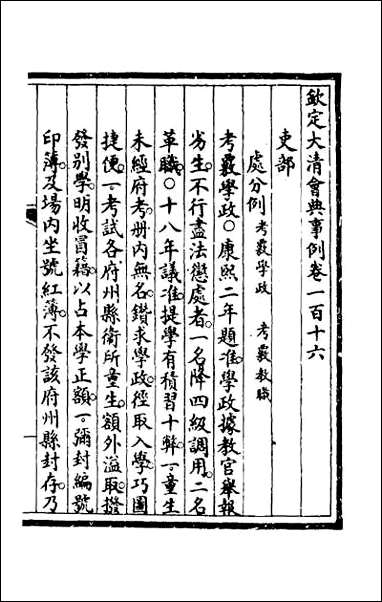 欽定大清會典事例卷一百十六
吏部
處分例 考覈學政 考覈教職
考覈學政○康熙二年題准學政據教官舉報
劣生不行盡法懲處者一名降四級調用二名
革職○十八年議准提學有積習十弊一童生
未經府考册內無名鑽求學政徑取入學巧圖
捷便一考試各府州縣衛所童生額外溢取撥
發別學明收冒籍以占本學正額一彌封編號
印簿及場內坐號紅簿不發該府州縣封存乃